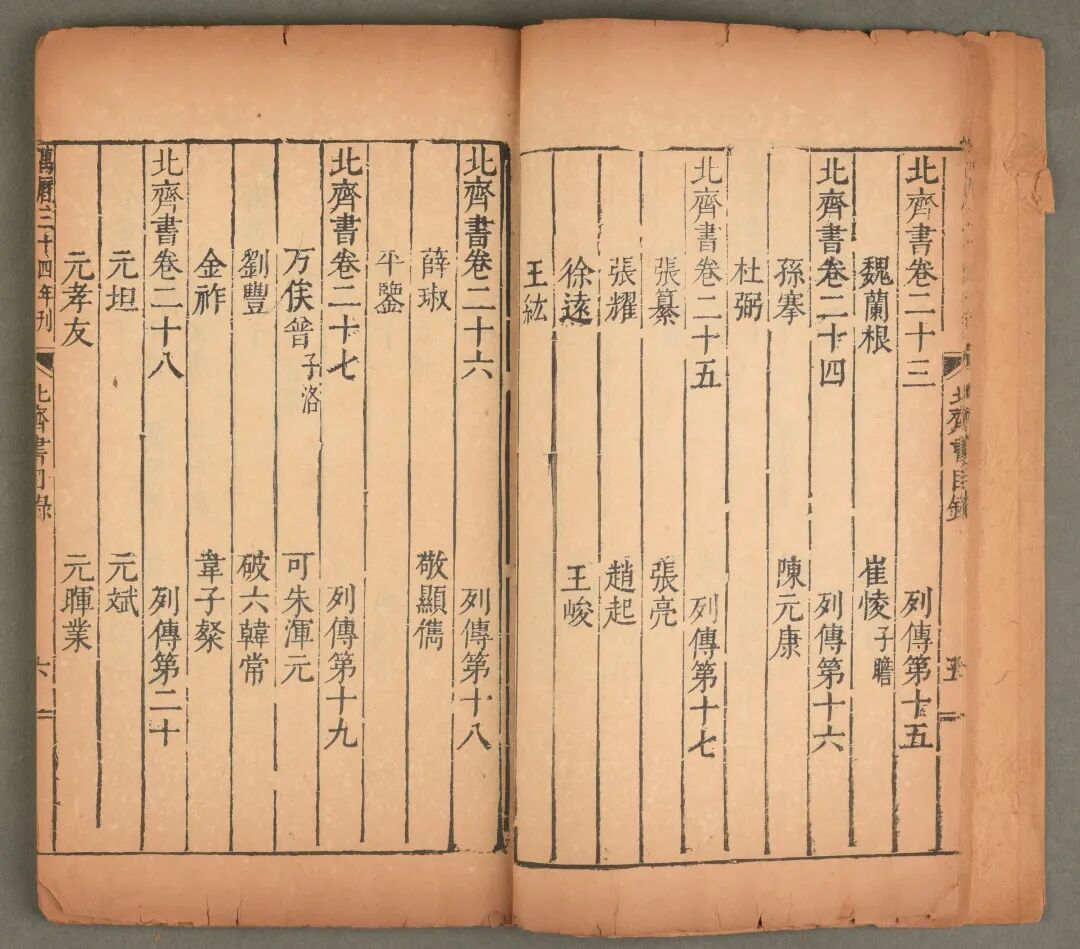 北齊書卷二十三 列傳第十五
魏蘭根 崔㥄子瞻
北齊書卷二十四 列傳第十六
孫搴 陳元康
杜弼
北齊書卷二十五 列傳第十七
張纂 張亮
張耀 趙起
徐遠 王峻
王紘
北齊書目錄
五
北齊書卷二十六 列傳第十八
薛琡 敬顯儁
平鑒
北齊書卷二十七 列傳第十九
万俟普子洛 可朱渾元
劉豐 破六韓常
金祚 韋子粲
北齊書卷二十八 列傳第二十
元坦 元斌
元孝友 元暉業
萬曆三十四年刊
北齊書目錄
六